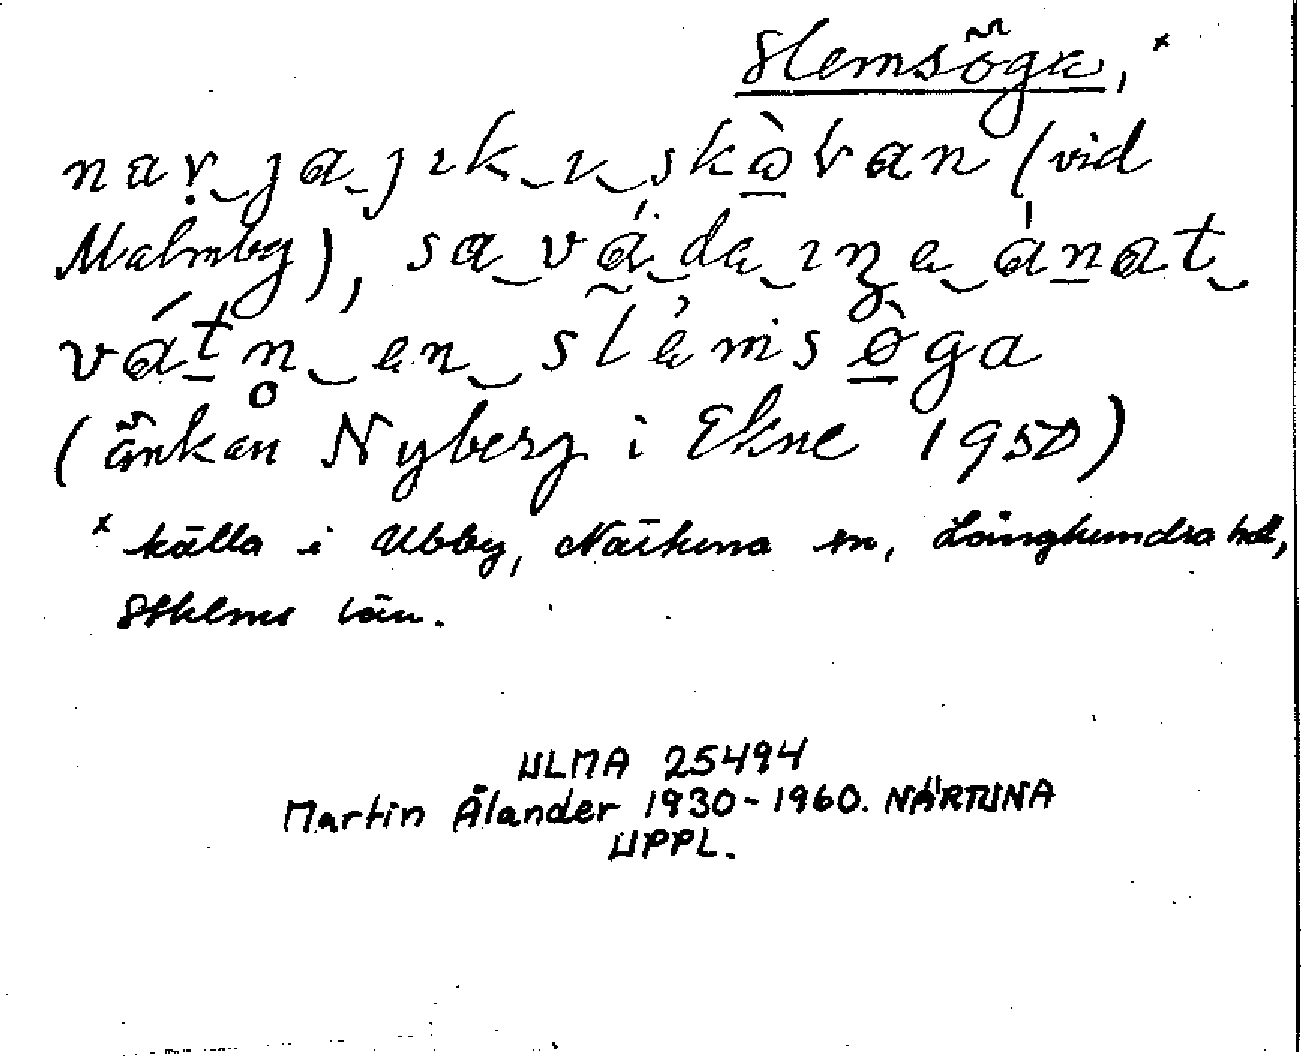 Slemsöga,ˣ
naṛ‿ja‿jık‿ı‿skò̱van (vid
Malmby), sa‿vá‿da‿ıŋa‿ána̱t‿
vátn̥‿en‿slèmsö̀ga
(änkan Nyberg i Ekne 1950)
ˣ källa i Ubby, Närtuna sn, Långhundra hd,
Sthlms län.
ULMA 25494
Martin Ålander 1930-1960. NÄRTUNA
UPPL.